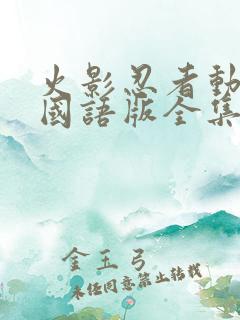 火影忍者動
國語版全集
金玉弓
未經同意禁止轉載